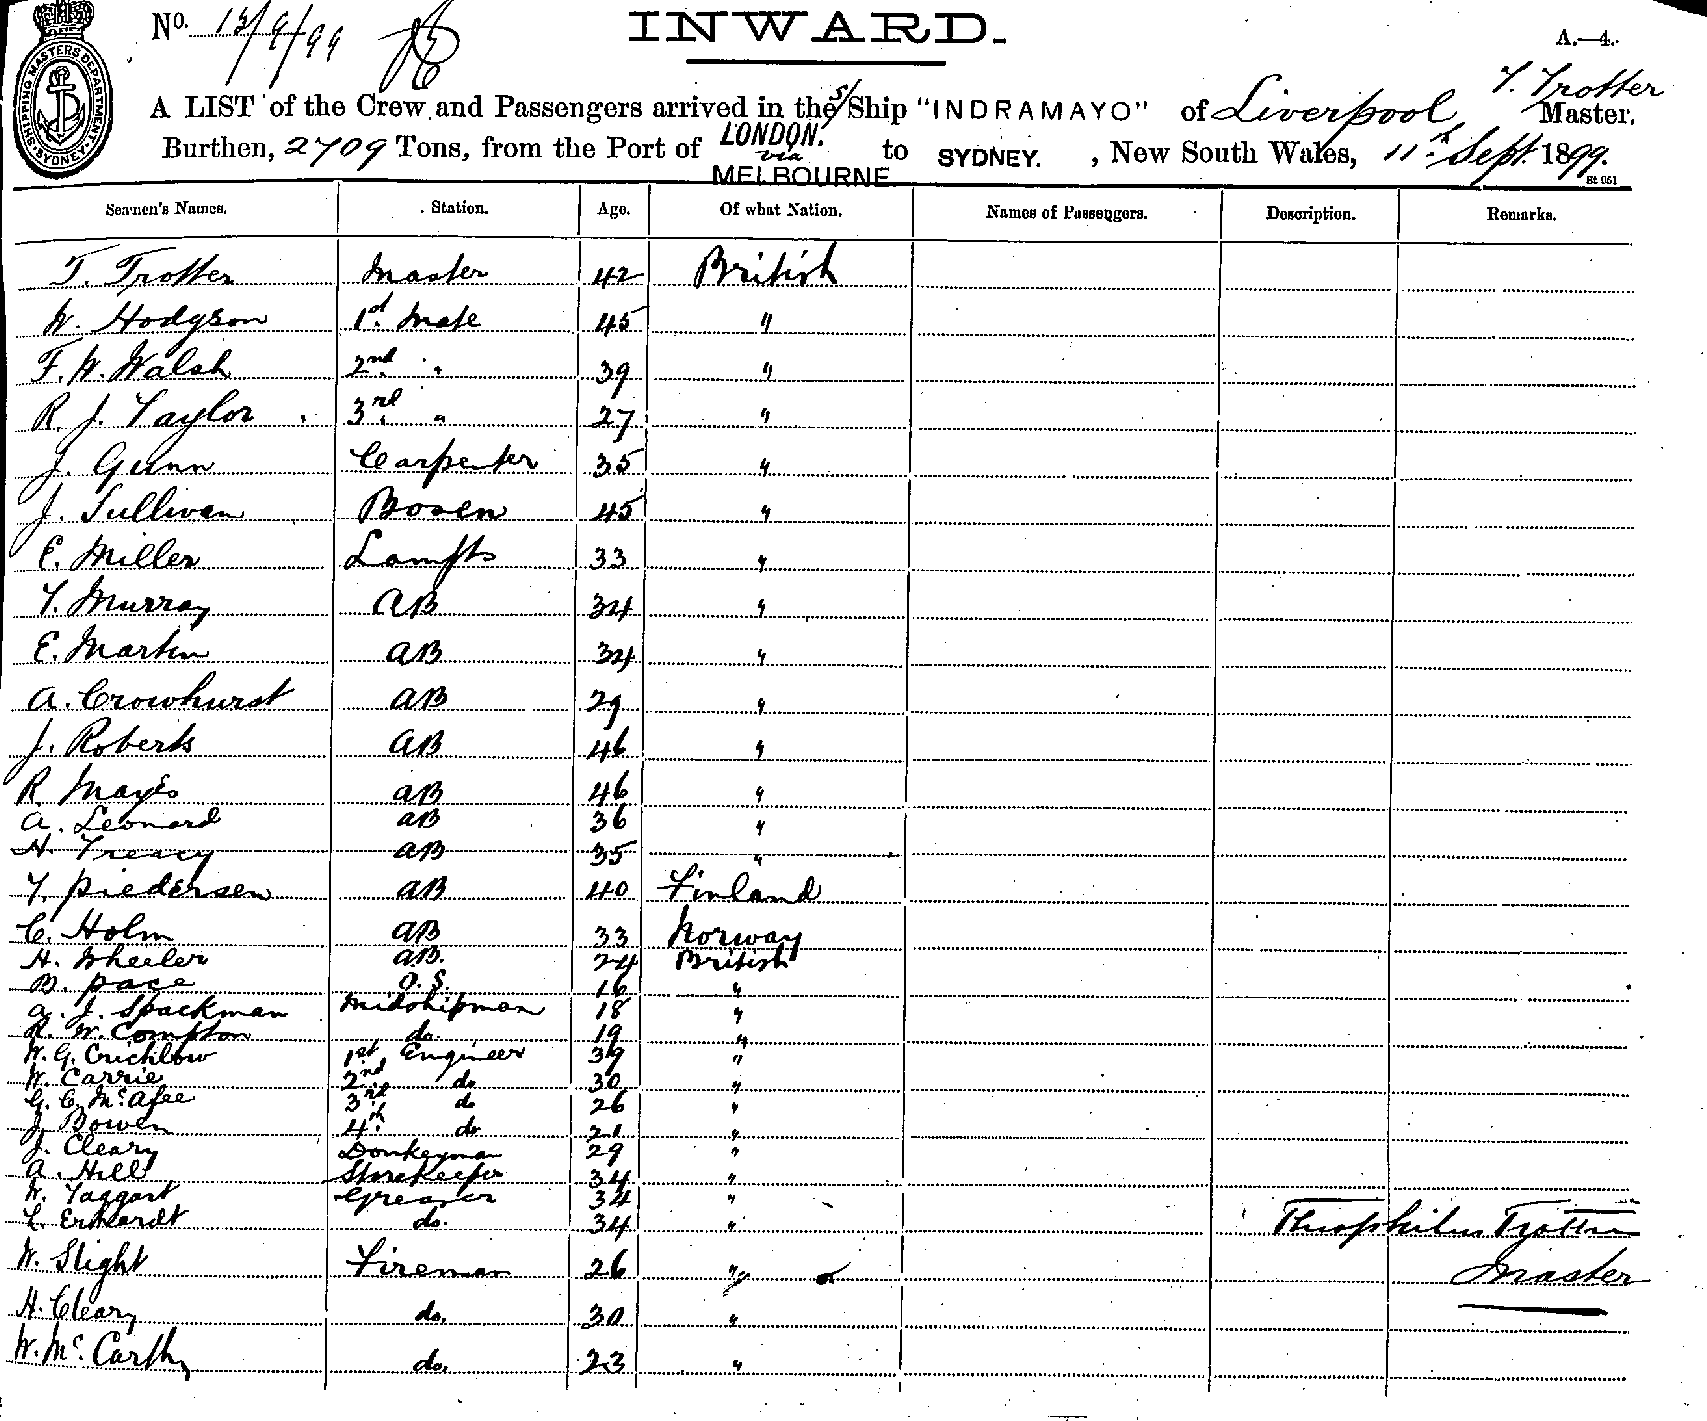 SHIPPING MASTERS DEPARTMENT SYDNEY
No. 13/9/99
INWARD.
A.—4.
A LIST of the Crew and Passengers arrived in the S/Ship "INDRAMAYO" of Liverpool, T. Trotter Master,
Burthen, 2709 Tons, from the Port of LONDON. via MELBOURNE to SYDNEY. , New South Wales, 11th Sept. 1899.
St 051
Seamen's Names. Station. Age. Of what Nation. Names of Passengers. Description. Remarks.
T. Trotter Master 42 British
W. Hodgson 1st Mate 45 "
F. W. Walsh 2nd " 39 "
R. J. Taylor 3rd " 27 "
J. Gunn Carpenter 35 "
J. Sullivan Bosen 45 "
E. Miller Lamps 33 "
T. Murray AB 34 "
E. Martin AB 34 "
A. Crowhurst AB 29 "
J. Roberts AB 46 "
R. Mayes AB 46 "
A. Leonard AB 36 "
H. Treacy AB 35 "
T. Piedersen AB 40 Finland
C. Holm AB 33 Norway
H. Wheeler AB. 24 British
B. Pace O.S. 16 "
A. J. Spackman Midshipman 18 "
R. W. Compton do. 19 "
W. G. Crichlow 1st Engineer 39 "
W. Carrie 2nd do 30 "
G. C. McAfee 3rd do 26 "
J. Bowen 4th do 21 "
J. Cleary Donkeyman 29 "
A. Hill Storekeeper 34 "
W. Taggart Greaser 34 "
C. Erhardt do. 34 " Theophilus Trotter
W. Slight Fireman 26 " Master
H. Cleary do. 30 "
W. McCarthy do. 23 "